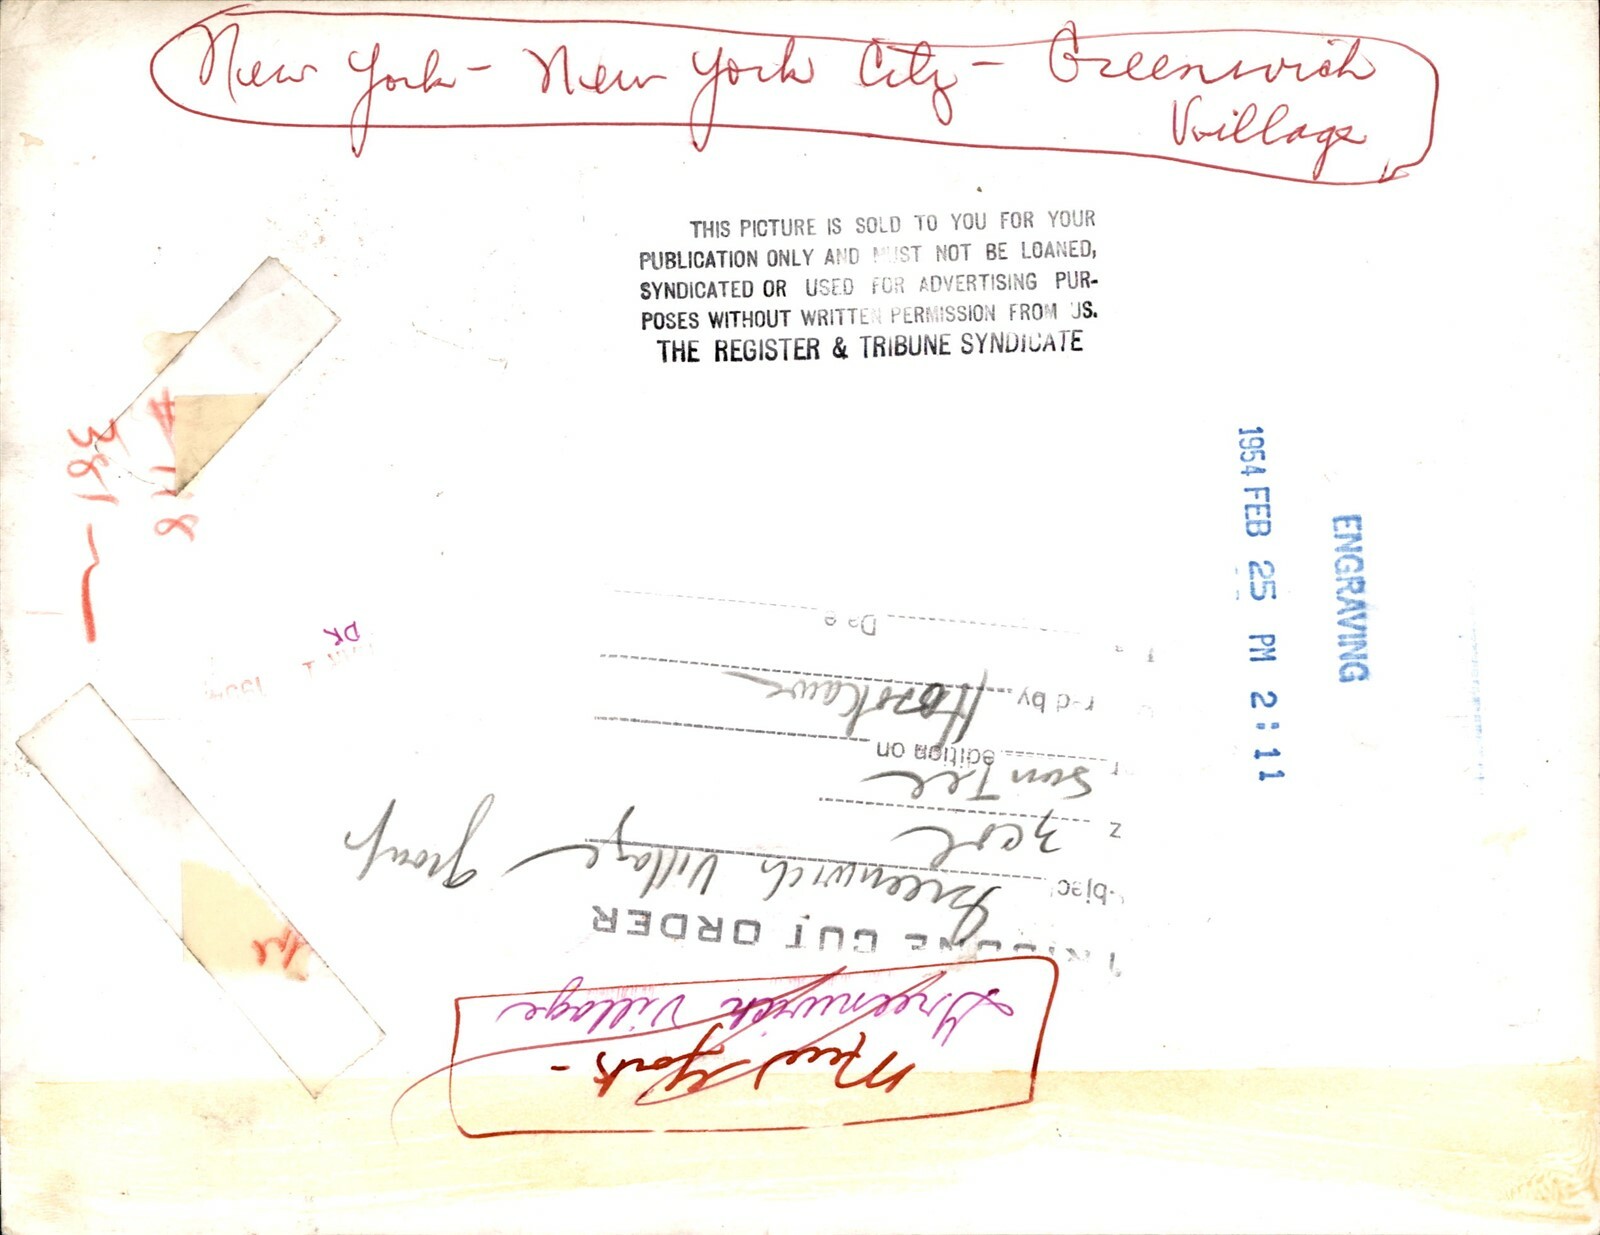 New York - New York City - Greenwich
Village
THIS PICTURE IS SOLD TO YOU FOR YOUR
PUBLICATION ONLY AND MUST NOT BE LOANED,
SYNDICATED OR USED FOR ADVERTISING PUR-
POSES WITHOUT WRITTEN PERMISSION FROM US.
THE REGISTER & TRIBUNE SYNDICATE
1954 FEB 25 PM 2:11
ENGRAVING
381
DK
New York -
Greenwich Village
TRIBUNE CUT ORDER
Greenwich Village group
3 col
Sun Tel
edition on